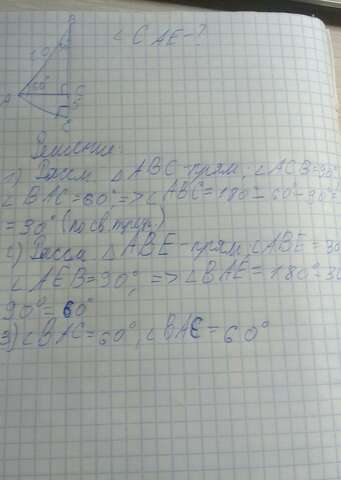 B
∠CAE-?
10
60°
A
C
E
Решение:
1) Рассм △ABC-прям, ∠ACB=90°
∠BAC=60° => ∠ABC=180°-60°-90°=
=30° (по св. треуг.)
2) Рассм △ABE-прям, ∠ABE=30
∠AEB=90°, => ∠BAE=180°-30
90°=60°
3) ∠BAC=60°, ∠BAE=60°